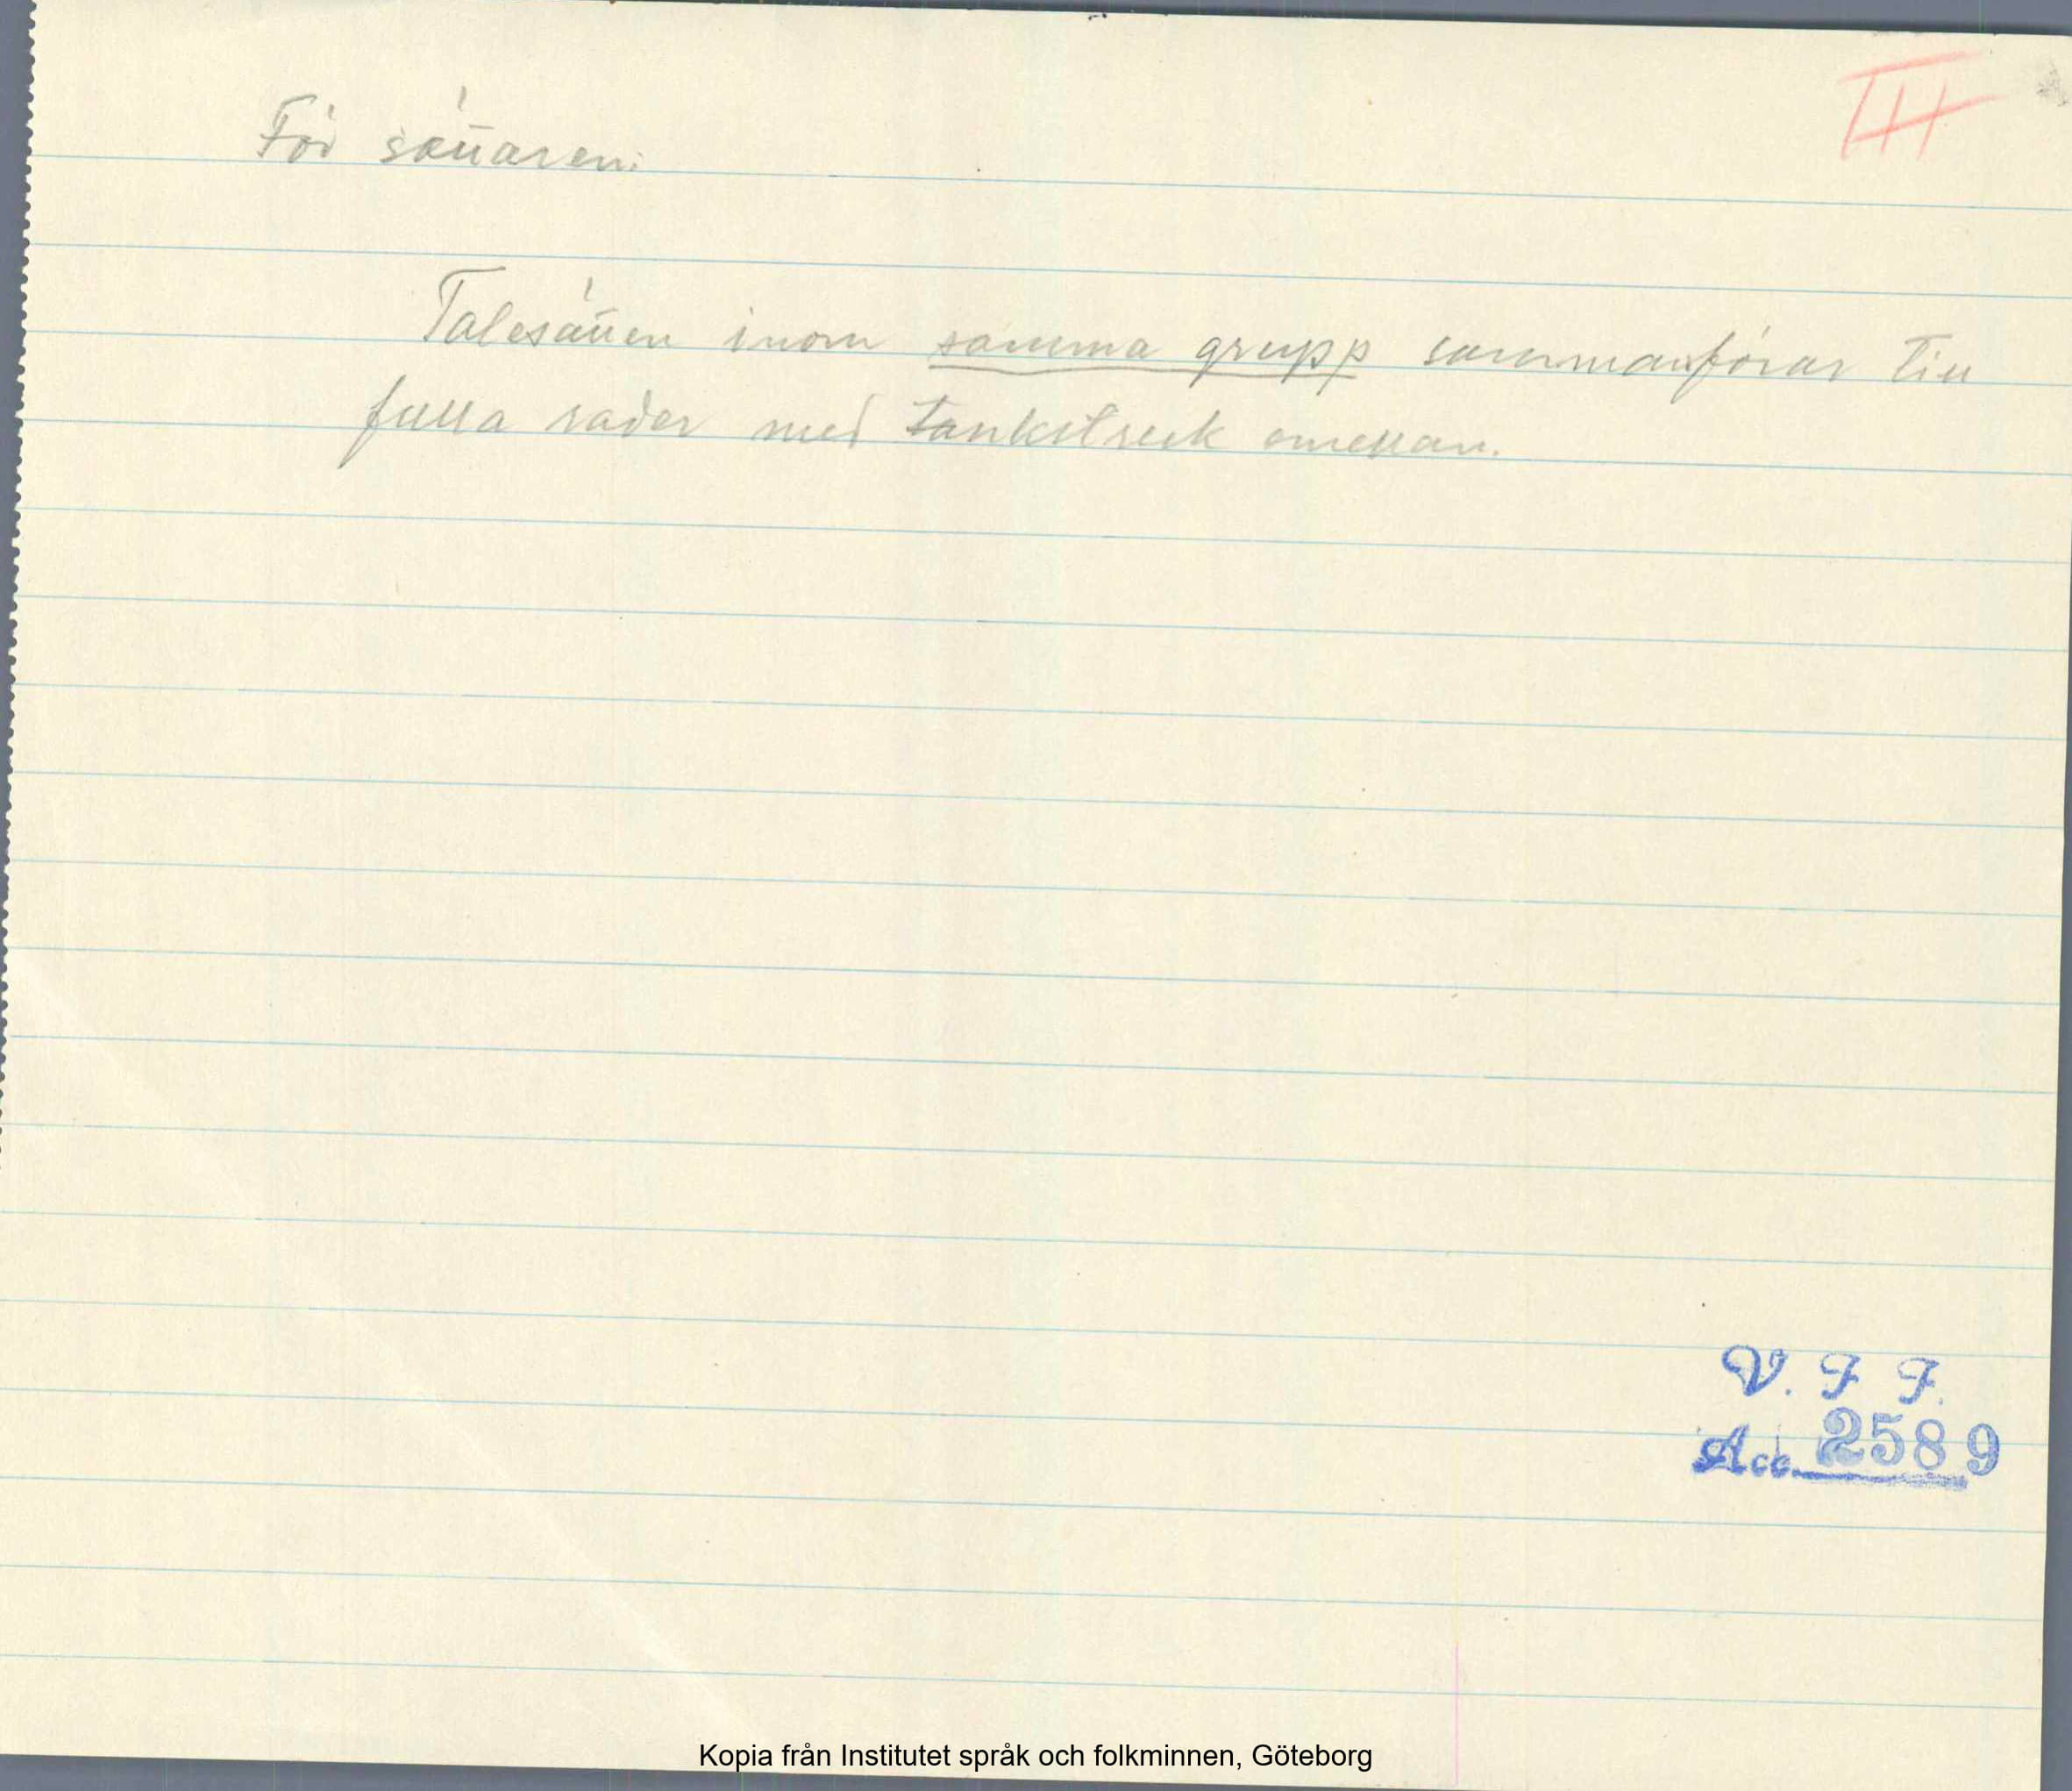 III
För sättaren:
Talesätten inom samma grupp sammanföras till
fulla rader med tankstreck emellan.
V. F. F.
Acc. 2589
Kopia från Institutet språk och folkminnen, Göteborg